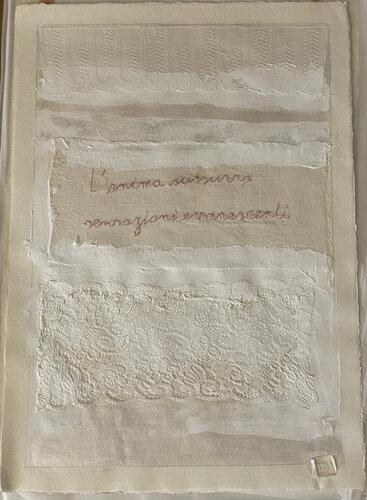 L'anima sussurra
sensazioni evanescenti